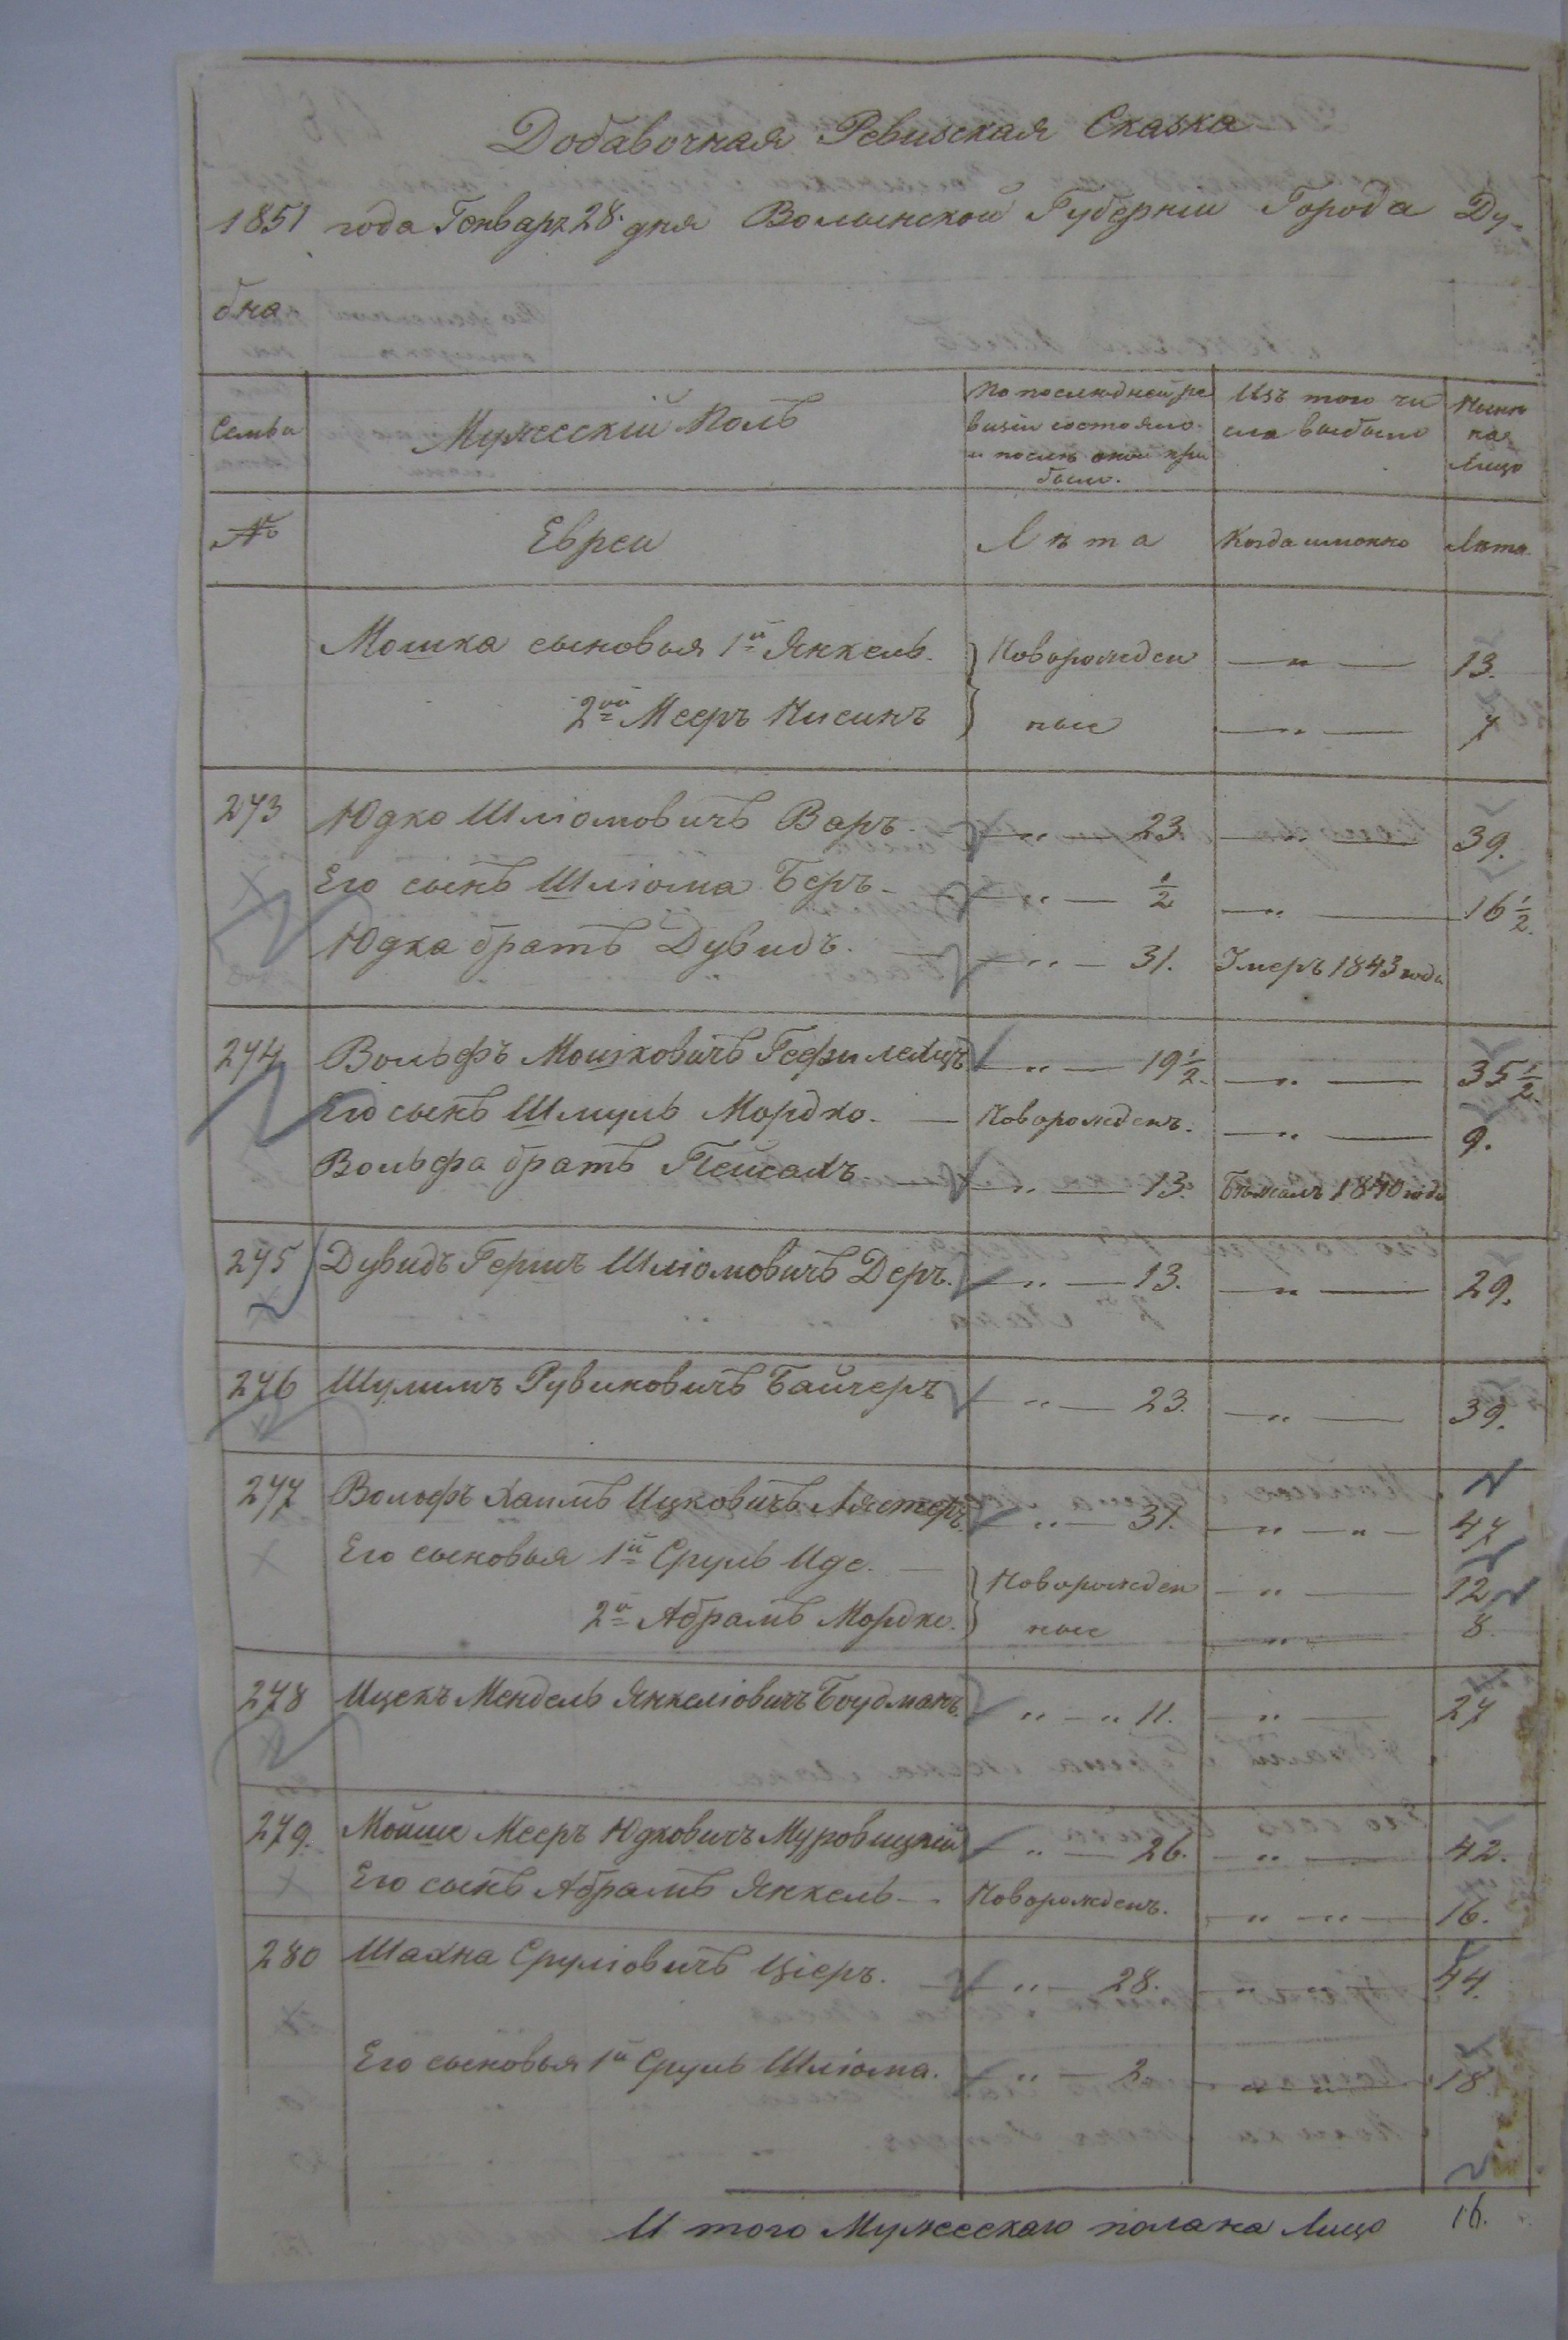 Добавочная Ревизская Сказка
1851 года Генваря 28 дня Волынской Губернии Города Ду-
бна
Семьи
Мужескій Полъ
По последней ре
визіи состояло
и послѣ оной при
было.
Изъ того чи
сла выбыло
Нынѣ
на
Лицо
№
Евреи
Лѣта
Когда именно
Лѣта
Мошка сыновья 1й Янкель. Новорожден — „ — 13.
2ой Мееръ Нисинъ ные — „ — 7
273 Юдко Шліомовичъ Варъ. — „ — 23. — „ — 39.
Его сынъ Шліома Беръ — „ — ½ — „ — 16½.
Юдка братъ Дувидъ. — „ — 31. Умеръ 1843 года
274 Вольфъ Мошковичъ — „ — 19½. — „ — 35½.
Его сынъ Шмуль Мордко. — Новорожденъ. — „ — 9.
Вольфа братъ Пейсахъ — „ — 13. Бѣжалъ 1840 года
275 Дувидъ Гершъ Шліомовичъ Деръ. — „ — 13. — „ — 29.
276 Шулимъ Рувиновичъ Байчеръ — „ — 23. — „ — 39.
277 Вольфъ Хаимъ Ицковичъ Лястеръ. — „ — 31. — „ — „ — 47
Его сыновья 1й Сруль Иде. — Новорожден — „ — 12
2й Абрамъ Мордко. ные — „ — 8.
278 Ицекъ Мендель Янкеліовичъ Боудманъ. „ — „ 11. — „ — 27
279. Мойше Мееръ Юдковичъ Муровицкій „ — 26. — „ — 42.
Его сынъ Абрамъ Янкель — Новорожденъ. — „ — „ — 16.
280 Шахна Сруліовичъ Ціеръ. — „ — 28. — „ — „ — 44.
Его сыновья 1й Сруль Шліома. — „ — 2 — „ — „ — 18.
И того Мужескаго пола на Лицо 16.